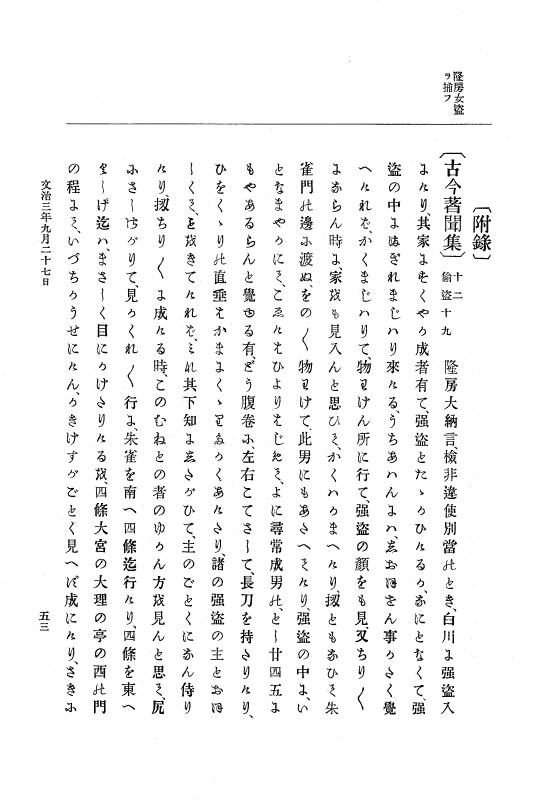 隆房女盗
ヲ捕フ
〔附錄〕
〔古今著聞集〕十二偸盗十九　隆房大納言、檢非違使別當のとき、白川に强盗入
にけり、其家にすくやか成者有て、强盗とたゝかひけるか、なにとなくて、强
盗の中にまぎれまじハり來ける、うちあハんにハ、しおほせん事かたく覺
へけれは、かくまじハりて、物わけん所に行て、强盗の顔をも見、又ちり〱
にならん時に、家をも見入んと思ひて、かくハかまへけり、扨ともなひて朱
雀門の邊に渡ぬ、をの〱物わけて、此男にもあたへてけり、强盗の中に、い
となまやかにて、こゑけはひよりはじめて、よに尋常成男の、とし廿四五に
もやあるらんと覺ゆる有、どう腹卷に左右こてさして、長刀を持たりけり、
ひをくゝりの直垂はかまにくゝりたかくあけたり、諸の强盗の主とおほ
しくて、をきてけれは、みな其下知にしたがひて、主のごとくになん侍り
けり、扨ちり〱に成ける時、このむねとの者のゆかん方を見んと思て、尻
にさしさがりて、見かくれ〱行に、朱雀を南へ四條迄行けり、四條を東へ
くしげ迄ハ、まさしく目にかけたりけるを、四條大宮の大理の亭の西の門
の程にて、いづちかうせにけん、かきけすがごとく見へず成にけり、さきに
文治三年九月二十七日
五三